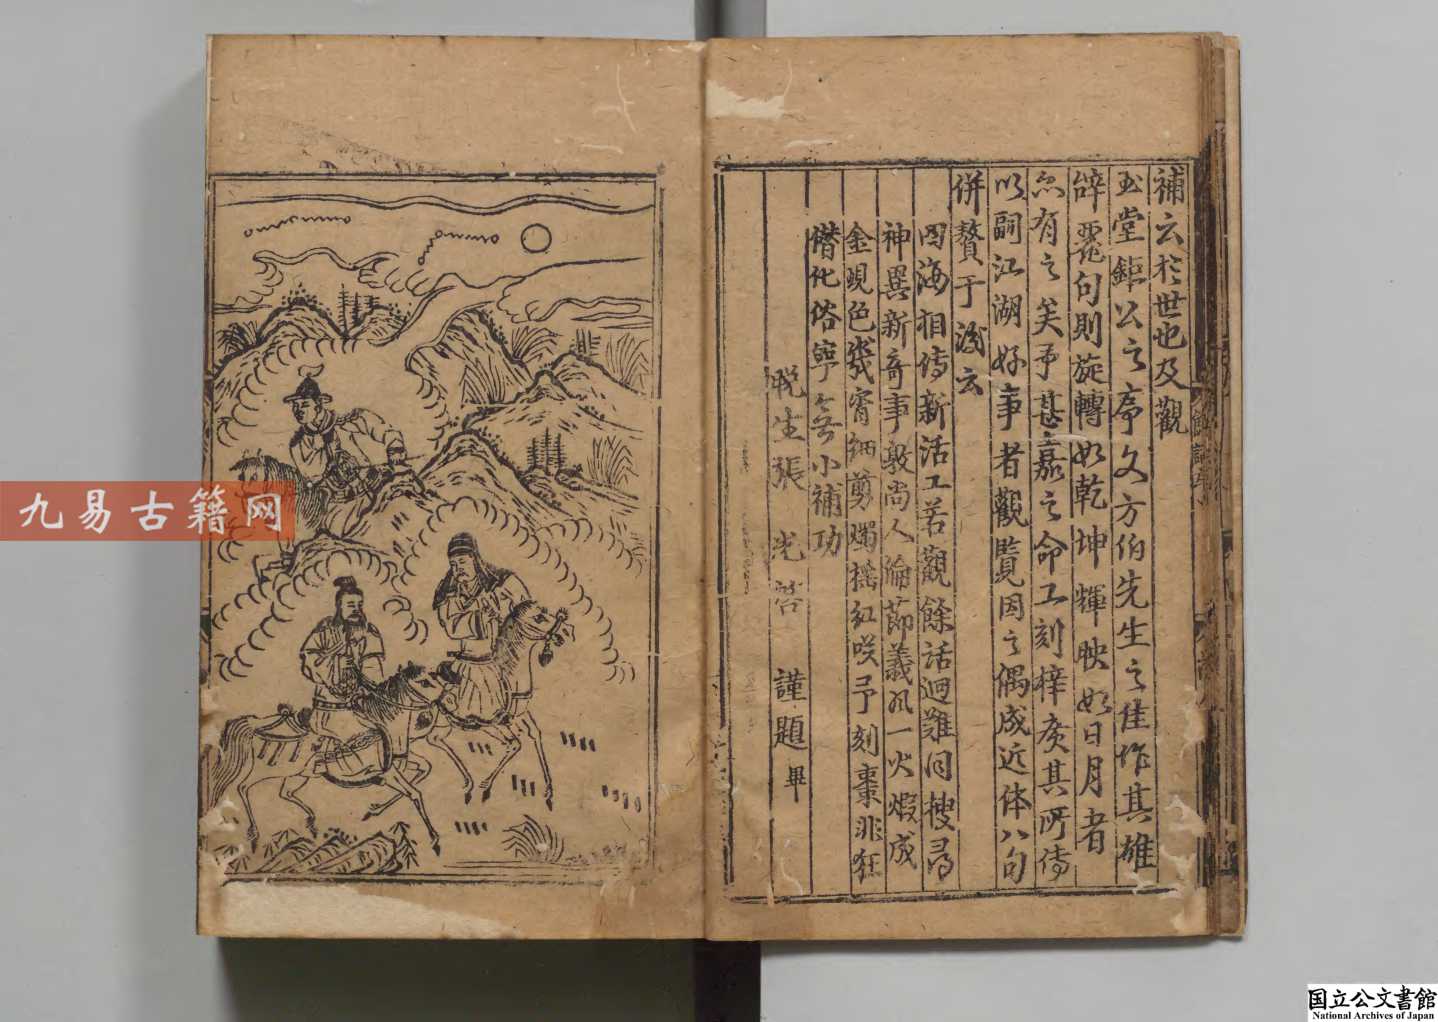 補云於世也及觀
玉堂鉅公之序文方伯先生之佳作其雄
辭麗句則旋轉如乾坤輝映如日月者
忽有之矣予甚嘉之命工刻梓廣其所傳
以嗣江湖好事者觀覽因之偶成近体八句
併贅于後云
四海相傳新活工若觀餘話迥難同搜尋
神異新奇事敦尚人倫節義風一火煆成
金現色幾宵細剪燭搖紅咲予刻棗非狂
僭化俗寧無小補功
晚生張光啓謹題畢
九易古籍网
国立公文書館
National Archives of Japan